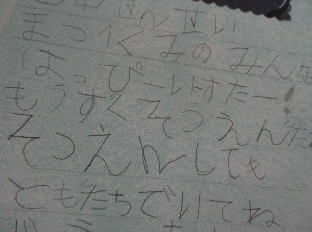 せんせい
まつぐみのみんな
はっぴーいすたー!
もうすぐそつえんだ
そつえんしても
ともだちでいてね